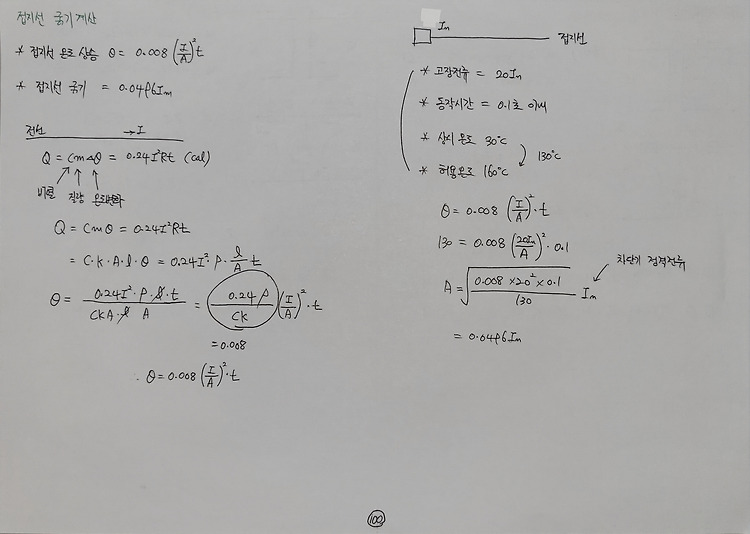 접지선 굵기 계산
* 접지선 온도 상승 θ = 0.008 (I/A)² t
* 접지선 굵기 = 0.0496 In
전선 → I
Q = cm△θ = 0.24 I²Rt (cal)
비열 질량 온도변화
Q = Cmθ = 0.24I²Rt
= C·K·A·l·θ = 0.24I²·ρ·l/A t
θ = 0.24I²·ρ·l·t / CKA·l A = 0.24ρ / CK (I/A)²·t
= 0.008
∴ θ = 0.008 (I/A)²·t
In
접지선
* 고장전류 = 20In
* 동작시간 = 0.1초 이내
* 상시 온도 30°C
130°C
* 허용온도 160°C
θ = 0.008 (I/A)²·t
130 = 0.008 (20In/A)²·0.1
차단기 정격전류
A = √(0.008 × 20² × 0.1 / 130) In
= 0.0496 In
100